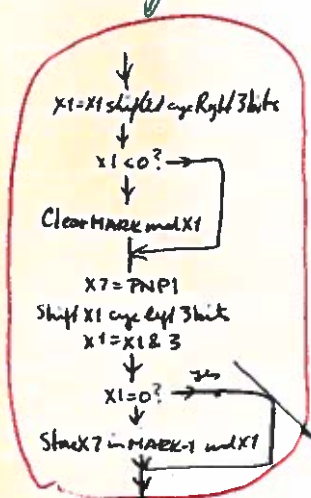 X1=X1 shifted cyc Right 3bits
X1<0?
Clear MARK mod X1
X7=PNP1
Shift X1 cyc left 3bits
X1=X1&3
X1=0? yes
Store X7 in MARK-1 mod X1